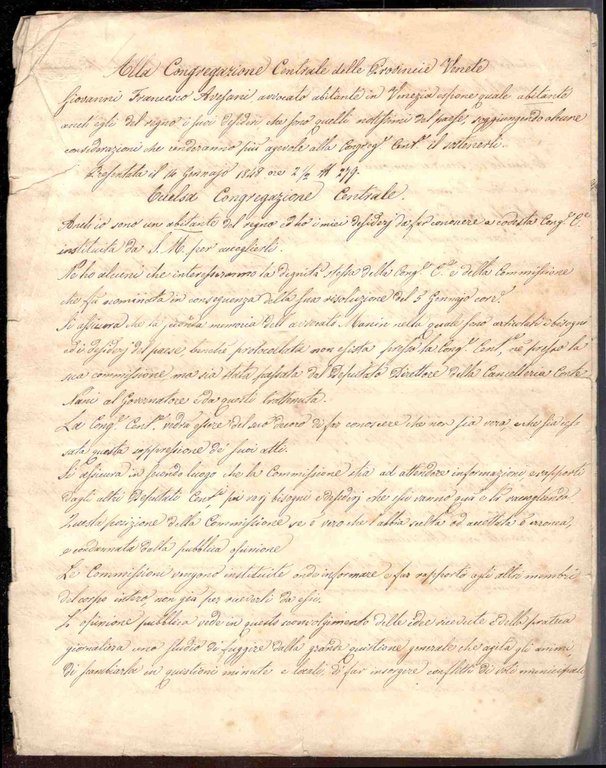 Alla Congregazione Centrale delle Provincie Venete
Giovanni Francesco Avesani avvocato abitante in Venezia espone quale abitante
anch'egli del regno i suoi desiderj che sono quelli notissimi del paese, soggiungendo alcune
considerazioni che renderanno più agevole alla Congreg.e Cent.e il sostenerli.
Presentata il 14 Gennajo 1848 ore 2 1/2 N 279.
Eccelsa Congregazione Centrale.
Anch'io sono un abitante del regno ed ho i miei desiderj da far conoscere a codesta Cong.e C.e
instituita da S. M. per accoglierli.
Ne ho alcuni che interessarono la dignità stessa della Cong.e C.e e della Commissione
che fu nominata in conseguenza della sua resoluzione del 5 Gennajo corr.e
Si assicura che la memoria dell'avvocato Manin nella quale sono articolati i bisogni
ed i desiderj del paese benchè protocollata non esista presso la Cong.e Cent.e, nè presso la
sua commissione ma sia stata passata dal Deputato Direttore della Cancelleria Conte
Nani al Governatore e da quello trattenuta.
La Cong.e Cent.e vedrà essere del suo decoro di far conoscere che non sia vera o che sia ces-
sata questa soppressione de' suoi atti.
Si assicura in secondo luogo che la Commissione stia ad attendere informazioni e rapporti
dagli altri Deputati Cent.i sui varj bisogni e desiderj che essi vanno quà e là racogliendo
Questa posizione della Commissione se è vero che l'abbia scelta od accettata è erronea,
e condannata dalla pubblica opinione
Le Commissioni vengono instituite onde informare e far rapporto agli altri membri
del corpo intero, non già per riceverli da essi.
L'opinione pubblica vede in questo sconvolgimento delle idee ricevute e della pratica
giornaliera uno studio di fuggire dalla grande quistione generale che agita gli animi
di cambiarla in questioni minute e locali, di far insorgere conflitti di voti municipali